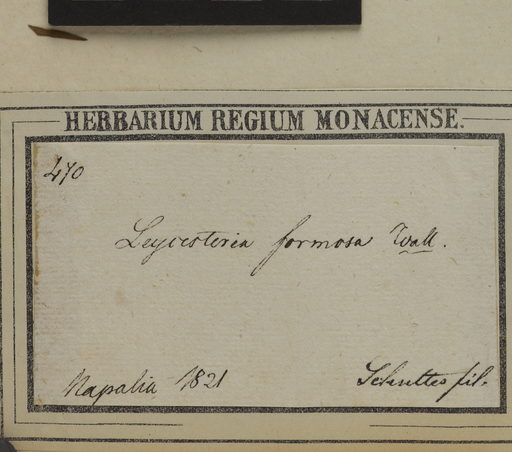 HERBARIUM REGIUM MONACENSE.
470
Leycesteria formosa Wall.
Napalia 1821
Schultes fil.